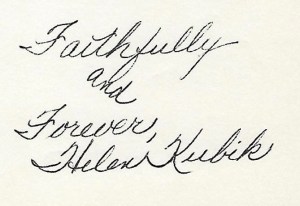 Faithfully
and
Forever,
Helen Kubik